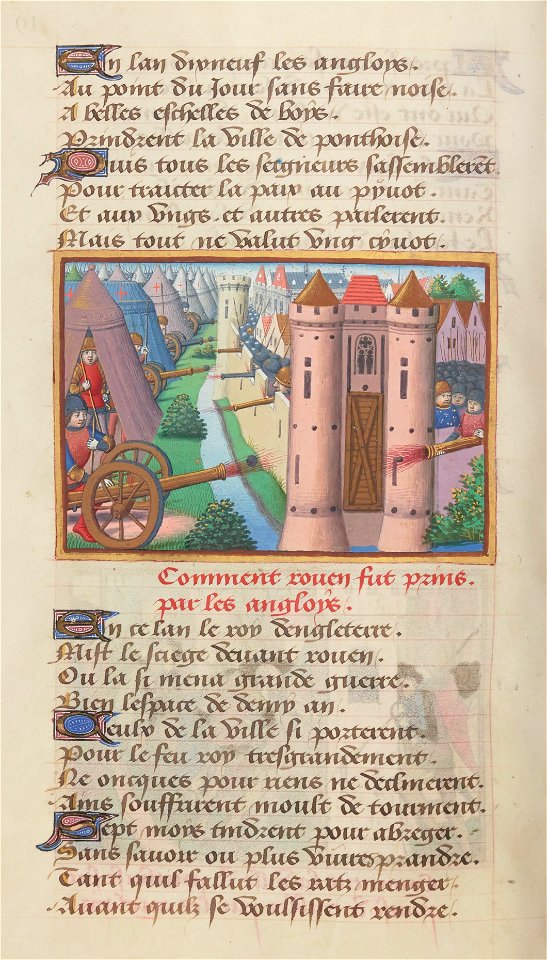 En lan dixneuf les angloys.
Au point du Jour sans faire noise.
A belles eschelles de boys.
Prindrent la ville de ponthoise.
Puis tous les seigneurs sassemblerent
Pour traicter la paix au pyuot.
Et aux vngs et autres parlerent.
Mais tout ne valut vng cyuot.
Comment rouen fut prins.
par les angloys.
En ce lan le roy dengleterre.
Mist le siege deuant rouen.
Ou la si mena grande guerre.
Bien lespace de demy an.
Ceulx de la ville si porterent.
Pour le feu roy tresgrandement.
Ne oncques pour riens ne declinerent.
Ains souffrirent moult de tourment.
Sept moys tindrent pour abreger.
Sans sauoir ou plus viures prandre.
Tant quil fallut les ratz menger.
Auant quilz se voulsissent rendre.